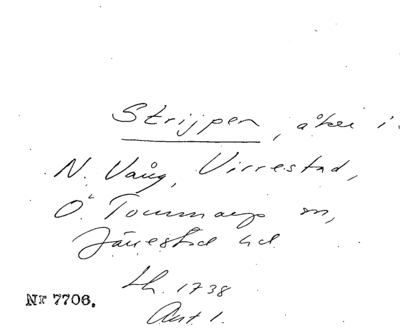 Strijpen, åker i
N. Vång, Virrestad,
Ö Tommarp sn,
Järrestad hd
Lh. 1738
Akt 1.
Nr 7706.